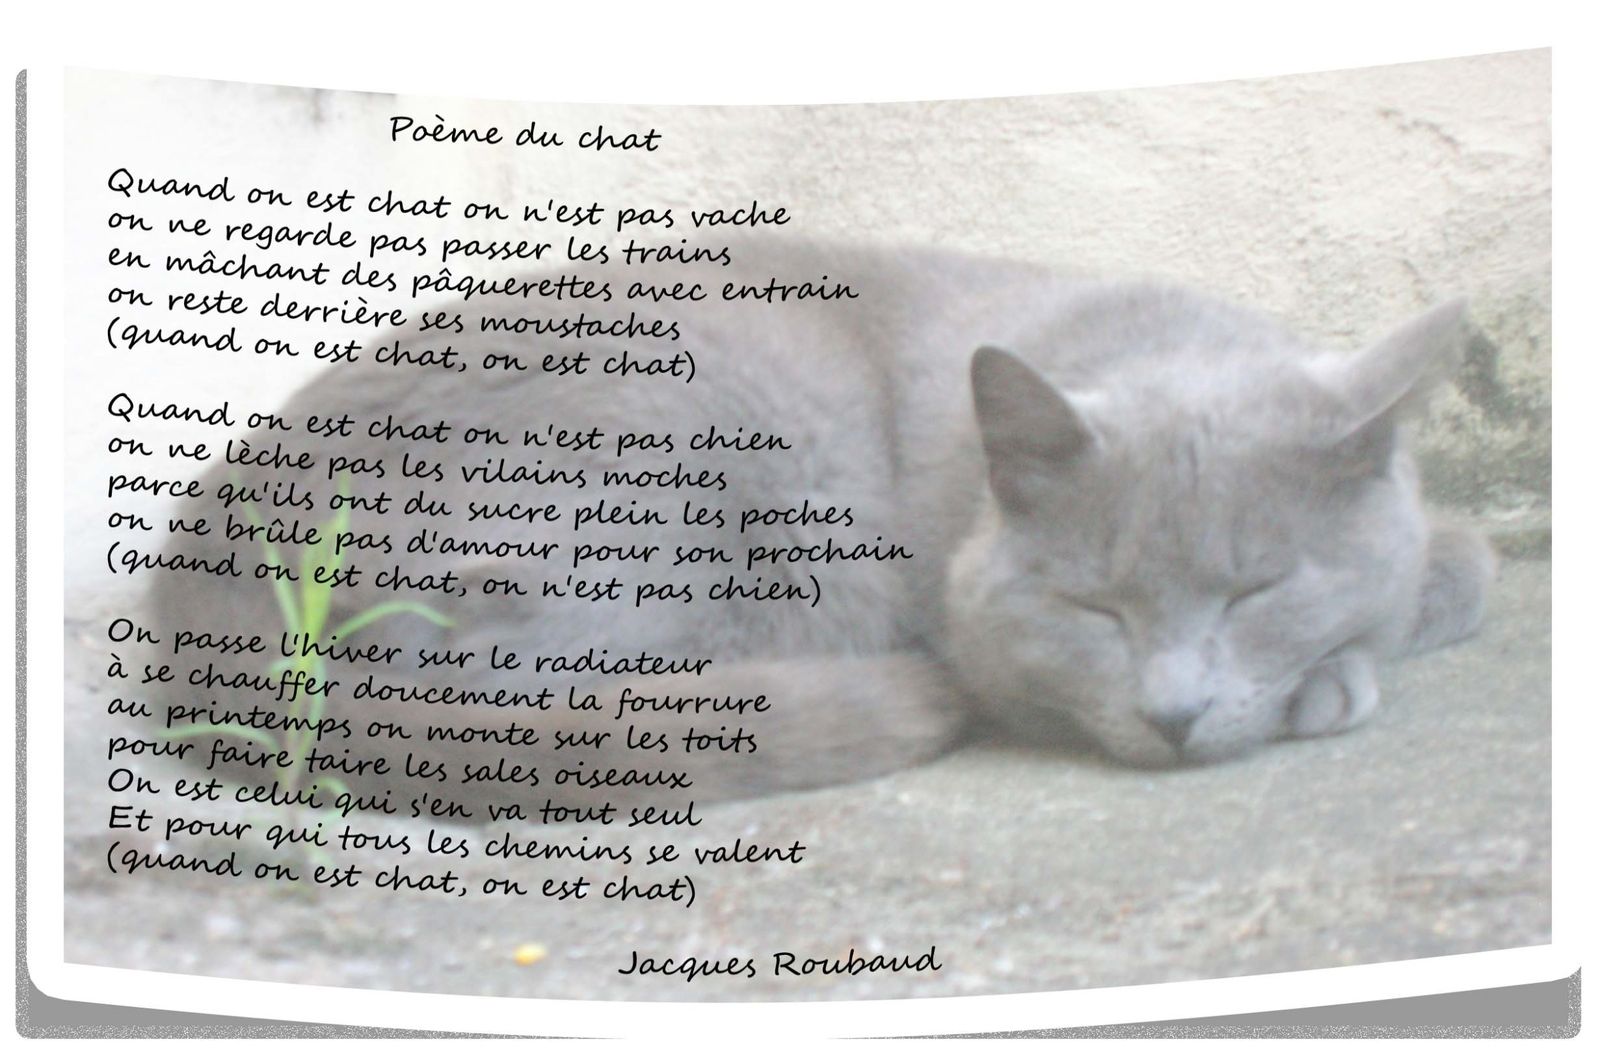 Poème du chat
Quand on est chat on n'est pas vache
on ne regarde pas passer les trains
en mâchant des pâquerettes avec entrain
on reste derrière ses moustaches
(quand on est chat, on est chat)
Quand on est chat on n'est pas chien
on ne lèche pas les vilains moches
parce qu'ils ont du sucre plein les poches
on ne brûle pas d'amour pour son prochain
(quand on est chat, on n'est pas chien)
On passe l'hiver sur le radiateur
à se chauffer doucement la fourrure
au printemps on monte sur les toits
pour faire taire les sales oiseaux
On est celui qui s'en va tout seul
Et pour qui tous les chemins se valent
(quand on est chat, on est chat)
Jacques Roubaud